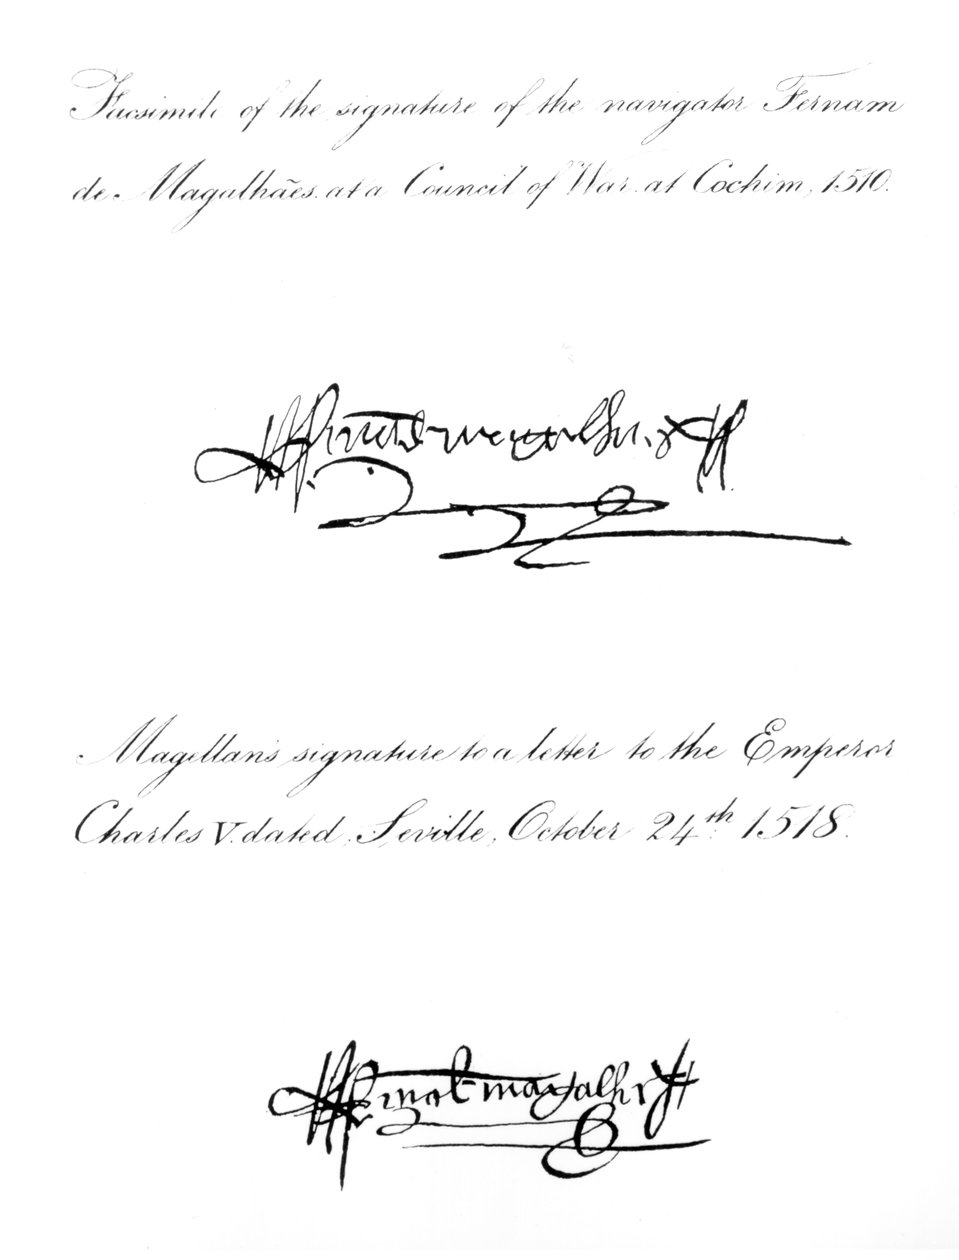 Facsimile of the signature of the navigator Fernam
de Magalhães. at a Council of War. at Cochim, 1510.
Magellan's signature to a letter to the Emperor
Charles V. dated, Seville, October 24th. 1518.